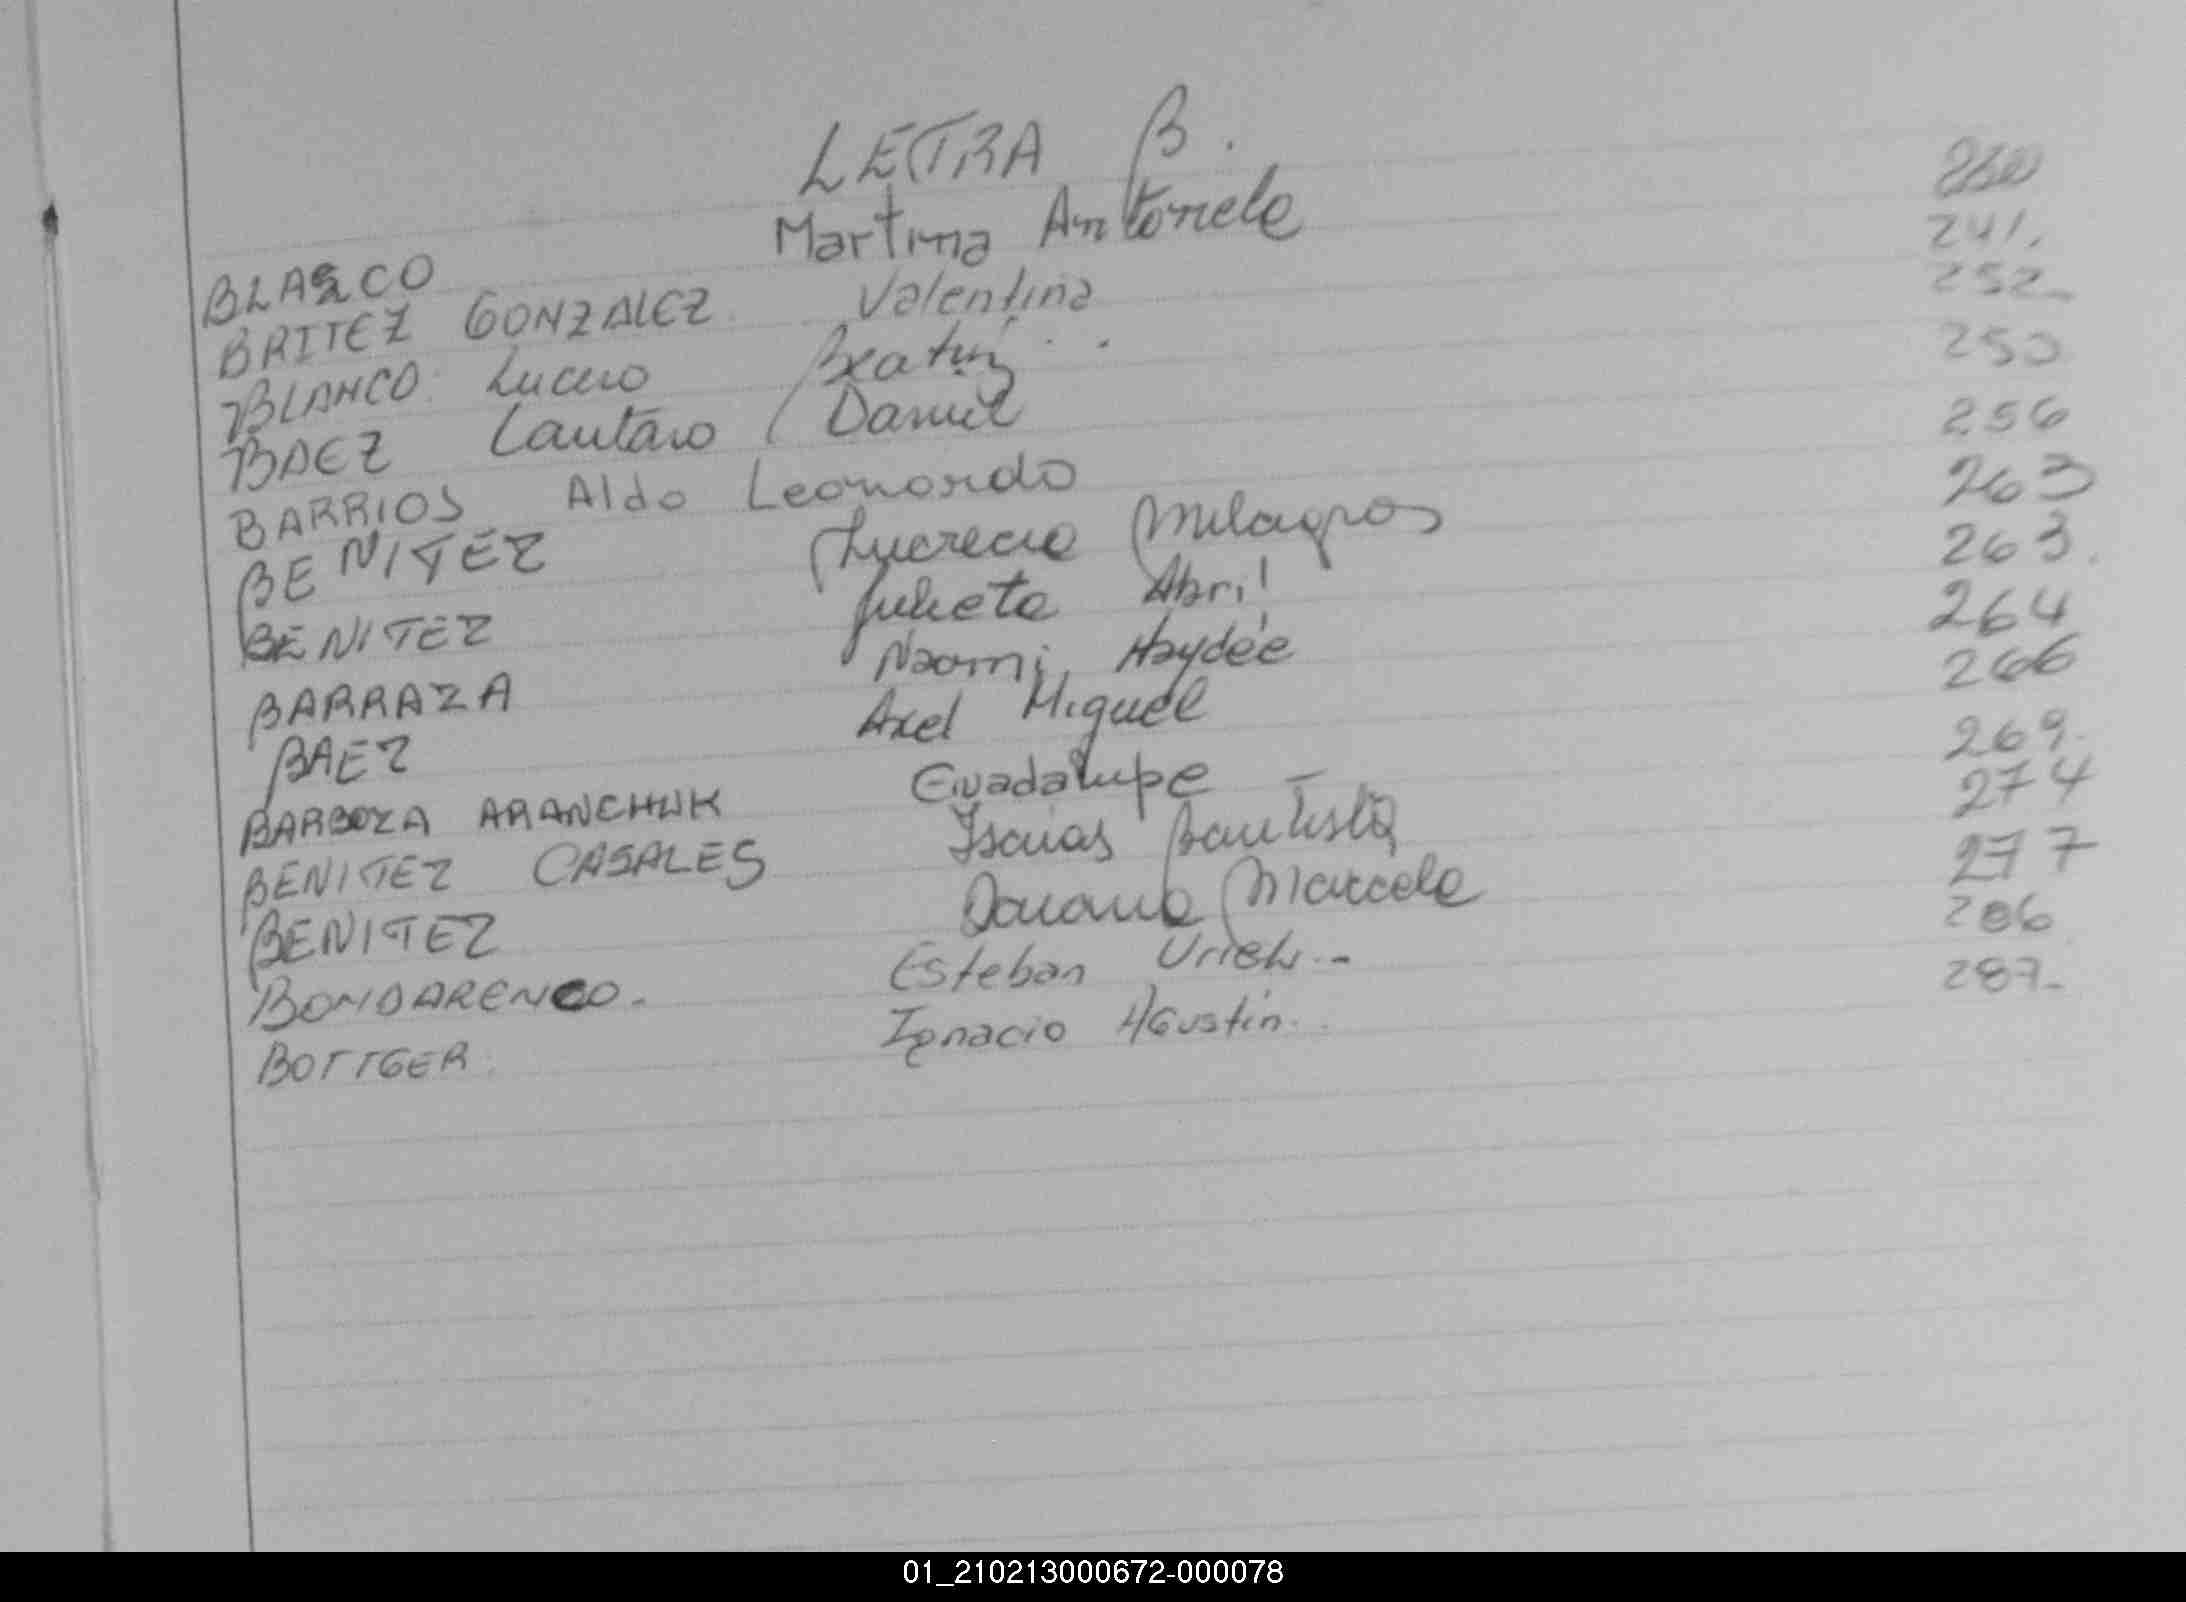 LETRA B.
BLASCO Martina Antonela
BRITEZ GONZALEZ Valentina 241.
BLANCO Lucero Beatriz 252
BAEZ Lautaro Daniel 253
BARRIOS Aldo Leonardo 256
BENITEZ Lucrecia Milagros 263
BENITEZ Julieta Abril 263.
BARRAZA Naomi Haydée 264
BAEZ Axel Miguel 266
BARBOZA ARANCHUK Guadalupe 269.
BENITEZ CASALES Isaias Bautista 274
BENITEZ Daiana Marcela 277
BONDARENCO. Esteban Uriel 286
BOTTGER. Ignacio AGustin. 287.
01_210213000672-000078